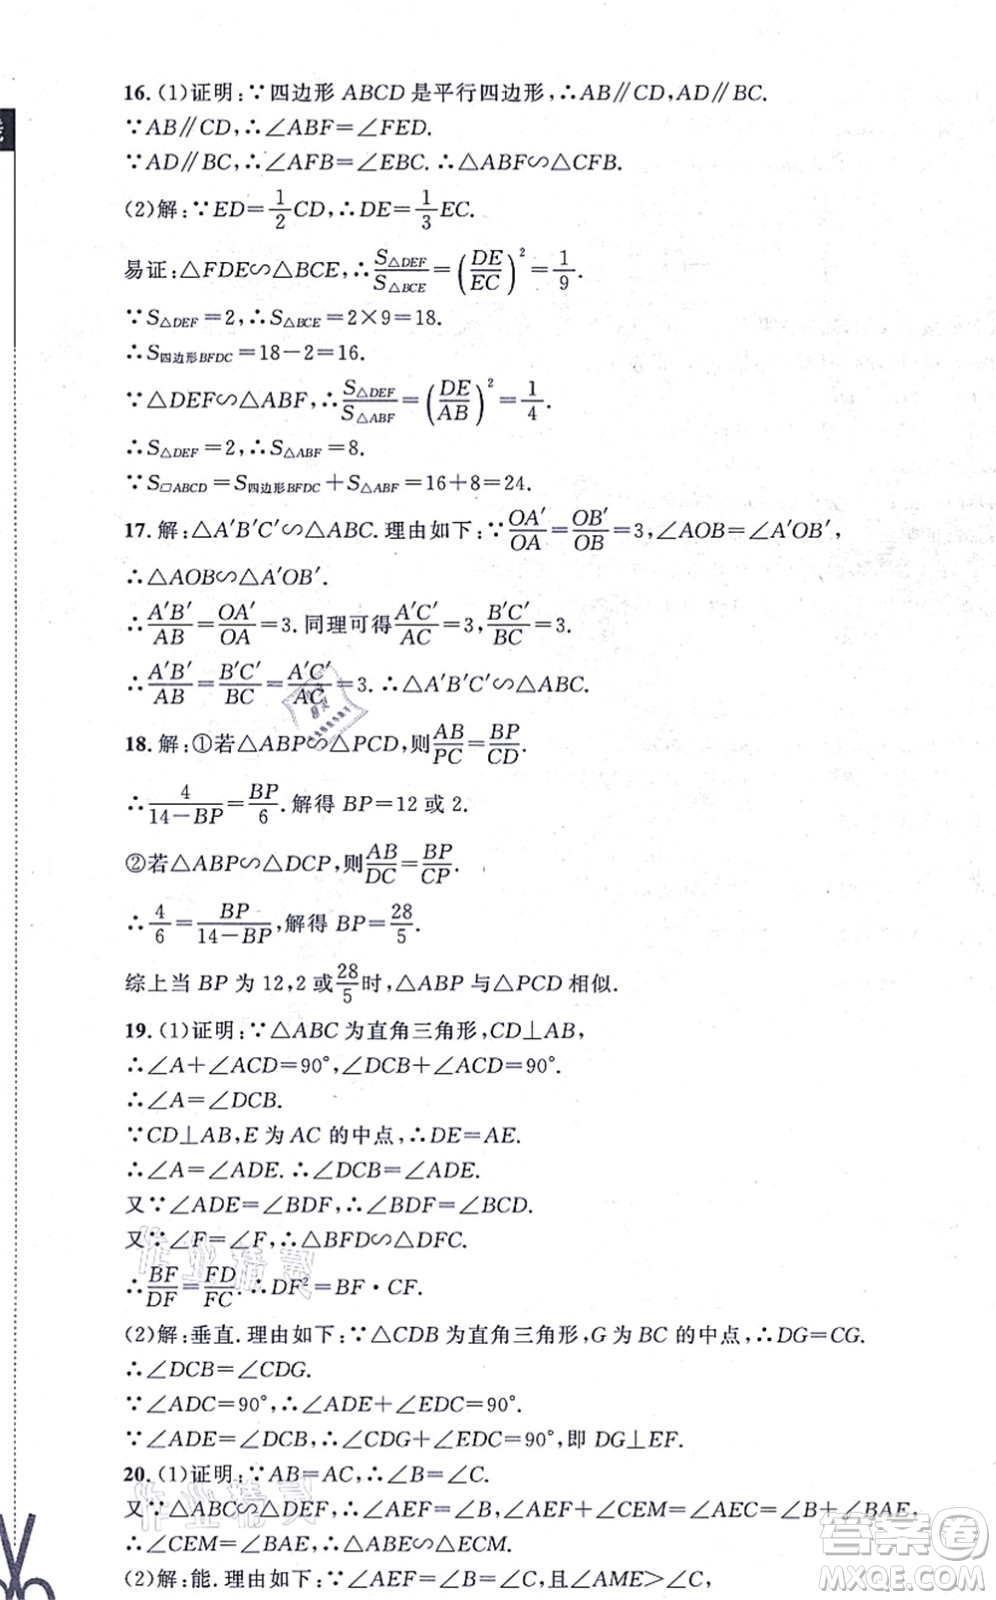 16. (1)证明:∵四边形 ABCD 是平行四边形,∴AB∥CD,AD∥BC.
∵AB∥CD,∴∠ABF=∠FED.
∵AD∥BC,∴∠AFB=∠EBC.∴△ABF∽△CFB.
(2)解:∵ED=1/2CD,∴DE=1/3EC.
易证:△FDE∽△BCE,∴S△DEF/S△BCE=(DE/EC)²=1/9.
∵S△DEF=2,∴S△BCE=2×9=18.
∴S四边形BFDC=18-2=16.
∵△DEF∽△ABF,∴S△DEF/S△ABF=(DE/AB)²=1/4.
∴S△DEF=2,∴S△ABF=8.
∵S▱ABCD=S四边形BFDC+S△ABF=16+8=24.
17. 解:△A′B′C′∽△ABC.理由如下:∵OA′/OA=OB′/OB=3,∠AOB=∠A′OB′,
∴△AOB∽△A′OB′.
∴A′B′/AB=OA′/OA=3.同理可得A′C′/AC=3,B′C′/BC=3.
∴A′B′/AB=B′C′/BC=A′C′/AC=3.∴△A′B′C′∽△ABC.
18. 解:①若△ABP∽△PCD,则AB/PC=BP/CD.
∴4/(14-BP)=BP/6.解得 BP=12 或 2.
②若△ABP∽△DCP,则AB/DC=BP/CP.
∴4/6=BP/(14-BP),解得 BP=28/5.
综上当 BP 为 12,2 或28/5时,△ABP 与△PCD 相似.
19. (1)证明:∵△ABC 为直角三角形,CD⊥AB,
∴∠A+∠ACD=90°,∠DCB+∠ACD=90°.
∴∠A=∠DCB.
∵CD⊥AB,E 为 AC 的中点,∴DE=AE.
∴∠A=∠ADE.∴∠DCB=∠ADE.
又∵∠ADE=∠BDF,∴∠BDF=∠BCD.
又∵∠F=∠F,∴△BFD∽△DFC.
∴BF/DF=FD/FC.∴DF²=BF·CF.
(2)解:垂直.理由如下:∵△CDB 为直角三角形,G 为 BC 的中点,∴DG=CG.
∴∠DCB=∠CDG.
∵∠ADC=90°,∴∠ADE+∠EDC=90°.
∵∠ADE=∠DCB,∴∠CDG+∠EDC=90°,即 DG⊥EF.
20. (1)证明:∵AB=AC,∴∠B=∠C.
又∵△ABC∽△DEF,∴∠AEF=∠B,∠AEF+∠CEM=∠AEC=∠B+∠BAE,
∴∠CEM=∠BAE.∴△ABE∽△ECM.
(2)解:能.理由如下:∵∠AEF=∠B=∠C,且∠AME>∠C,
作业精灵
作业精灵
答案圈
MXQE.COM